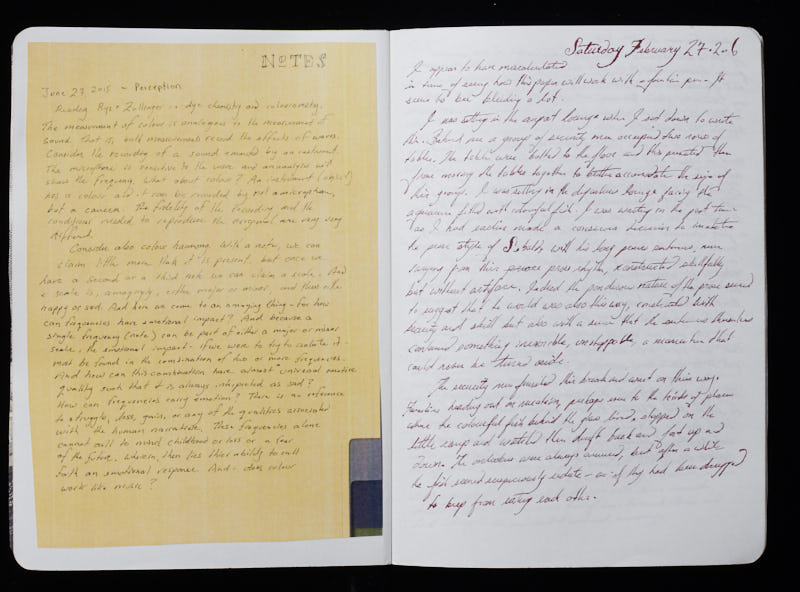 NOTES
June 27, 2015 - Perception
Reading Rys + Zollinger on dye chemistry and colorometry.
The measurement of colour is analogous to the measurement of
sound. That is, both measurements record the effects of waves.
Consider the recording of a sound sounded by an instrument.
The microphone is sensitive to the wave and an analysis will
show the frequency. What about colour? An instrument (object)
has a colour and it can be recorded by not a microphone,
but a camera. The fidelity of the recording and the
conditions needed to reproduce the original are very very
different.
Consider also colour harmony. With a note, we can
claim little more than it is present, but once we
have a second or a third note we can claim a scale. And
a scale is, annoyingly, either major or minor, and thus either
happy or sad. And here we come to an annoying thing - for how
can frequencies have emotional impact? And because a
single frequency (note) can be part of either a major or minor
scale, the emotional impact - if we were to try to isolate it -
must be found in the combination of two or more frequencies.
And how can this combination have almost universal emotive
quality such that it is always interpreted as sad?
How can frequencies carry emotion? There is no reference
to struggle, loss, gain, or any of the qualities associated
with the human narrative. These frequencies alone
cannot call to mind childhood or loss or a fear
of the future. Wherein, then lies this ability to call
forth an emotional response. And - does colour
work like music?
Saturday February 27. 2016
I appear to have miscalculated
in terms of seeing how this paper will work with a fountain pen. It
seems to be bleeding a lot.
I was sitting in the airport lounge when I sat down to write
this. Behind me a group of security men occupied two rows of
tables. The tables were bolted to the floor and this prevented them
from moving the tables together to better accomodate the size of
their group. I was sitting in the departures lounge facing the
aquarium filled with colourful fish. I was writing in the past tense
as I had earlier made a conscious decision to imitate
the prose style of Sebald with his long prose sentences, never
varying from their precise prose rhythm, constructed skillfully
but without artifice. Indeed the ponderous nature of the prose seemed
to suggest that the world was also this way, constructed with
beauty and skill but also with a sense that the sentences themselves
contained something inexorible, unstoppable, a mechanism that
could never be turned aside.
The security men finished their break and went on their way.
Families heading out on vacation, perhaps even to the kinds of places
where the colourful fish behind the glass lived, stopped on the
little ramp and watched them drift back and forth up and
down. The onlookers were always amused, but after a while
the fish seemed suspiciously sedate - as if they had been drugged
to keep from eating each other.